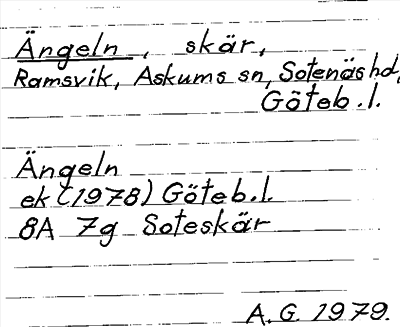 Ängeln, skär,
Ramsvik, Askums sn, Sotenäs hd,
Göteb.l.
Ängeln
ek (1978) Göteb.l.
8A 7g Soteskär
A.G. 1979.